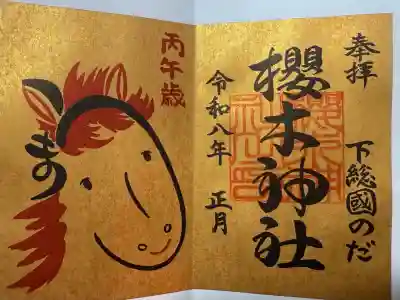 奉拝
下総國のだ
櫻木神社
令和八年
正月
丙午歳
うま